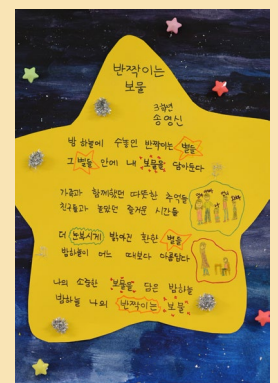 반짝이는
보물
3학년
송영신
밤 하늘에 수놓인 반짝이는 별들
그 별들 안에 내 보물을 담아둔다
가족과 함께했던 따뜻한 추억들
친구들과 놀았던 즐거운 시간들
더 눈부시게 밝혀진 환한 별들
밤하늘이 어느 때보다 아름답다
나의 소중한 보물을 담은 밤하늘
밤하늘 나의 반짝이는 보물